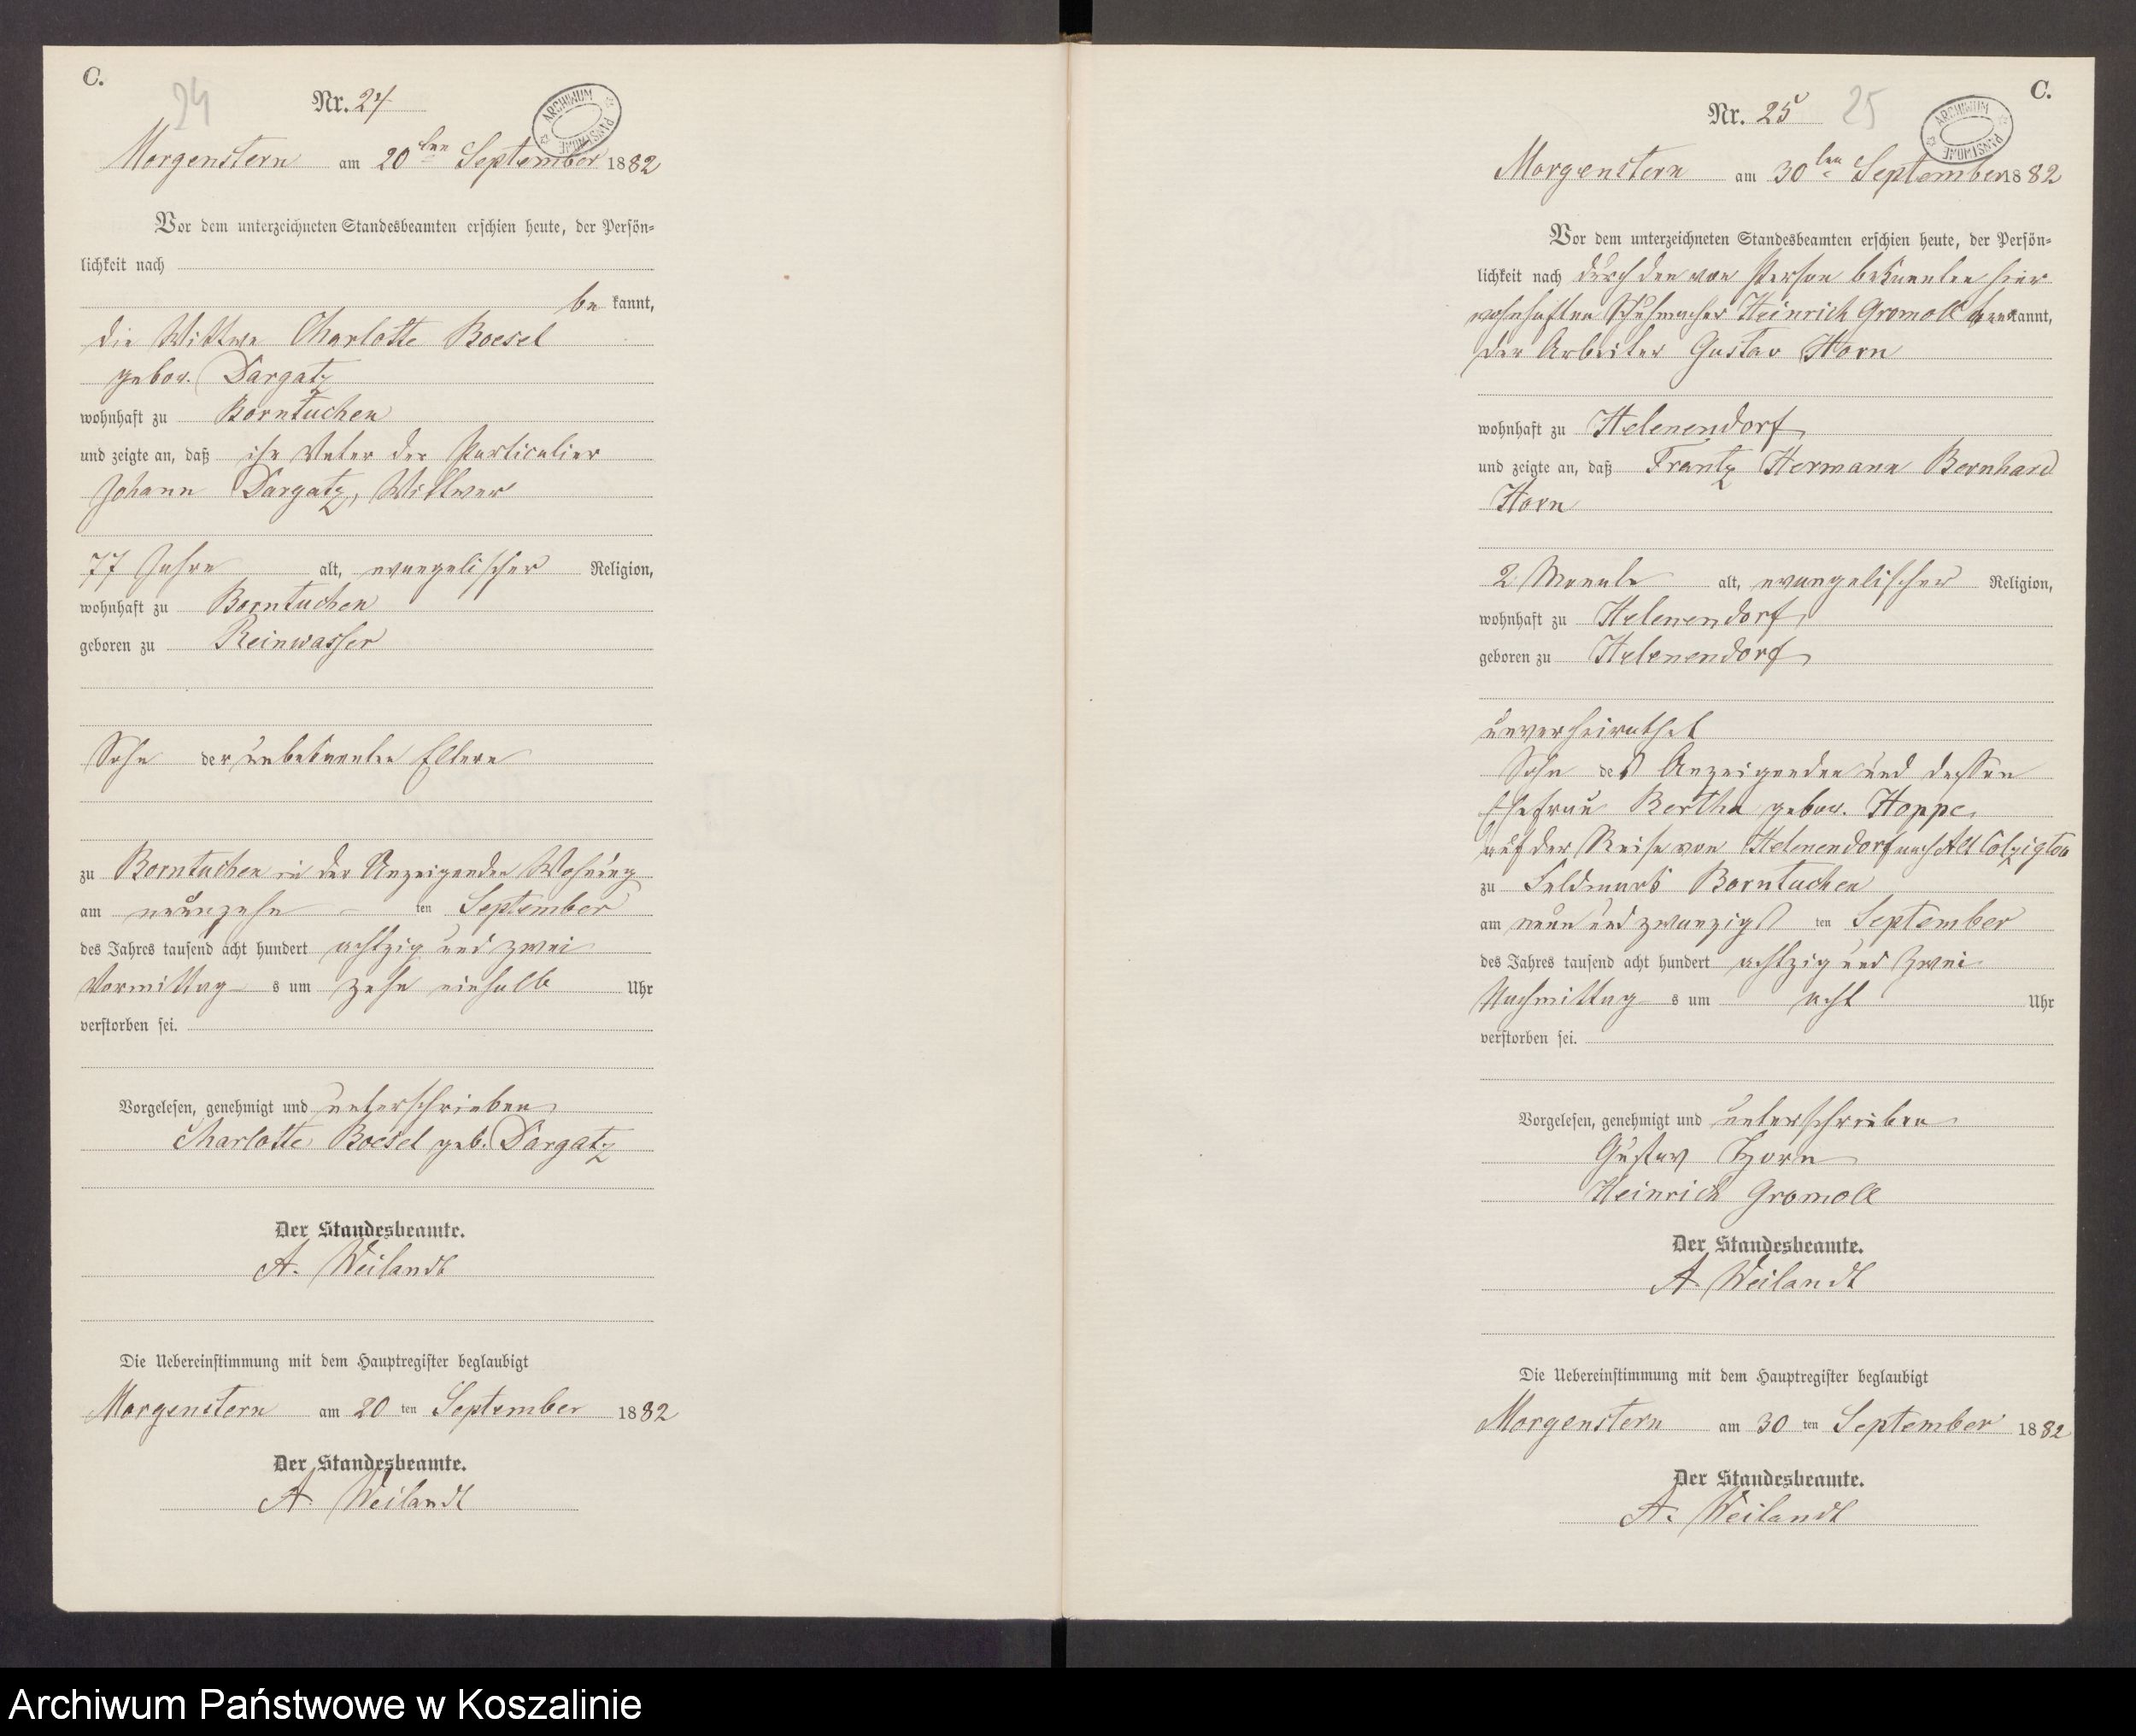 C.
24
Nr. 24
ARCHIWUM PAŃSTWOWE
Morgenstern am 20ten September 1882
Vor dem unterzeichneten Standesbeamten erschien heute, der Persön-
lichkeit nach
be kannt,
die Wittwe Charlotte Boesel
gebor. Dargatz
wohnhaft zu Borntuchen
und zeigte an, daß ihr Vater der Particulier
Johann Dargatz, Wittwer
77 Jahre alt, evangelischer Religion,
wohnhaft zu Borntuchen
geboren zu Reinwasser
Sohn der unbekannten Eltern
zu Borntuchen in der Anzeigenden Wohnung
am neunzehn ten September
des Jahres tausend acht hundert achtzig und zwei
Vormittag s um zehn einhalb Uhr
verstorben sei.
Vorgelesen, genehmigt und unterschrieben
Charlotte Boesel geb. Dargatz
Der Standesbeamte.
A. Weilandt
Die Uebereinstimmung mit dem Hauptregister beglaubigt
Morgenstern am 20 ten September 1882
Der Standesbeamte.
A. Weilandt
C.
Nr. 25
25
ARCHIWUM PAŃSTWOWE
Morgenstern am 30ten September 1882
Vor dem unterzeichneten Standesbeamten erschien heute, der Persön-
lichkeit nach durch den von Person bekannten hier
wohnhaften Schuhmacher Heinrich Gromoll anerkannt,
der Arbeiter Gustav Horn
wohnhaft zu Helenendorf
und zeigte an, daß Frantz Hermann Bernhard
Horn
2 Monate alt, evangelischer Religion,
wohnhaft zu Helenendorf
geboren zu Helenendorf
unverheirathet
Sohn des Anzeigenden und dessen
Ehefrau Bertha gebor. Hoppe
auf der Reise von Helenendorf nach Alt Colziglow
zu Feldmark Borntuchen
am neun und zwanzigs ten September
des Jahres tausend acht hundert achtzig und zwei
Nachmittag s um acht Uhr
verstorben sei.
Vorgelesen, genehmigt und unterschrieben
Gustav Horn
Heinrich Gromoll
Der Standesbeamte.
A. Weilandt
Die Uebereinstimmung mit dem Hauptregister beglaubigt
Morgenstern am 30 ten September 1882
Der Standesbeamte.
A. Weilandt
Archiwum Państwowe w Koszalinie